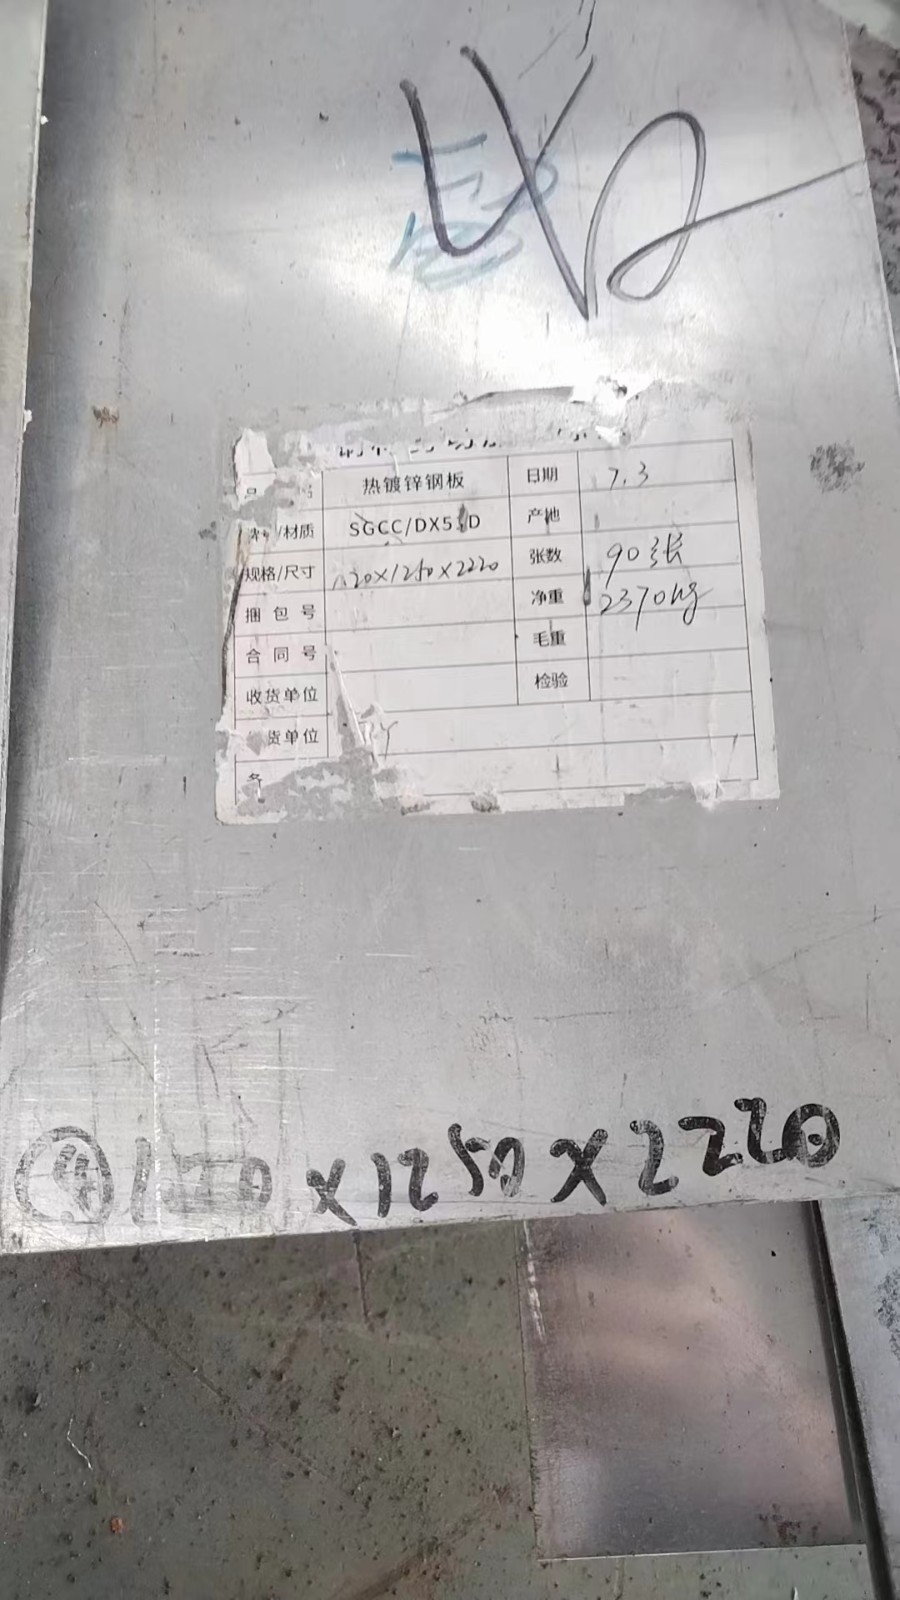 热镀锌钢板 日期 7.3
/材质 SGCC/DX5 D 产地
规格/尺寸 20×1250×2220 张数 90张
捆包号 净重 2370kg
合同号 毛重
收货单位 检验
货单位
×1250×2220